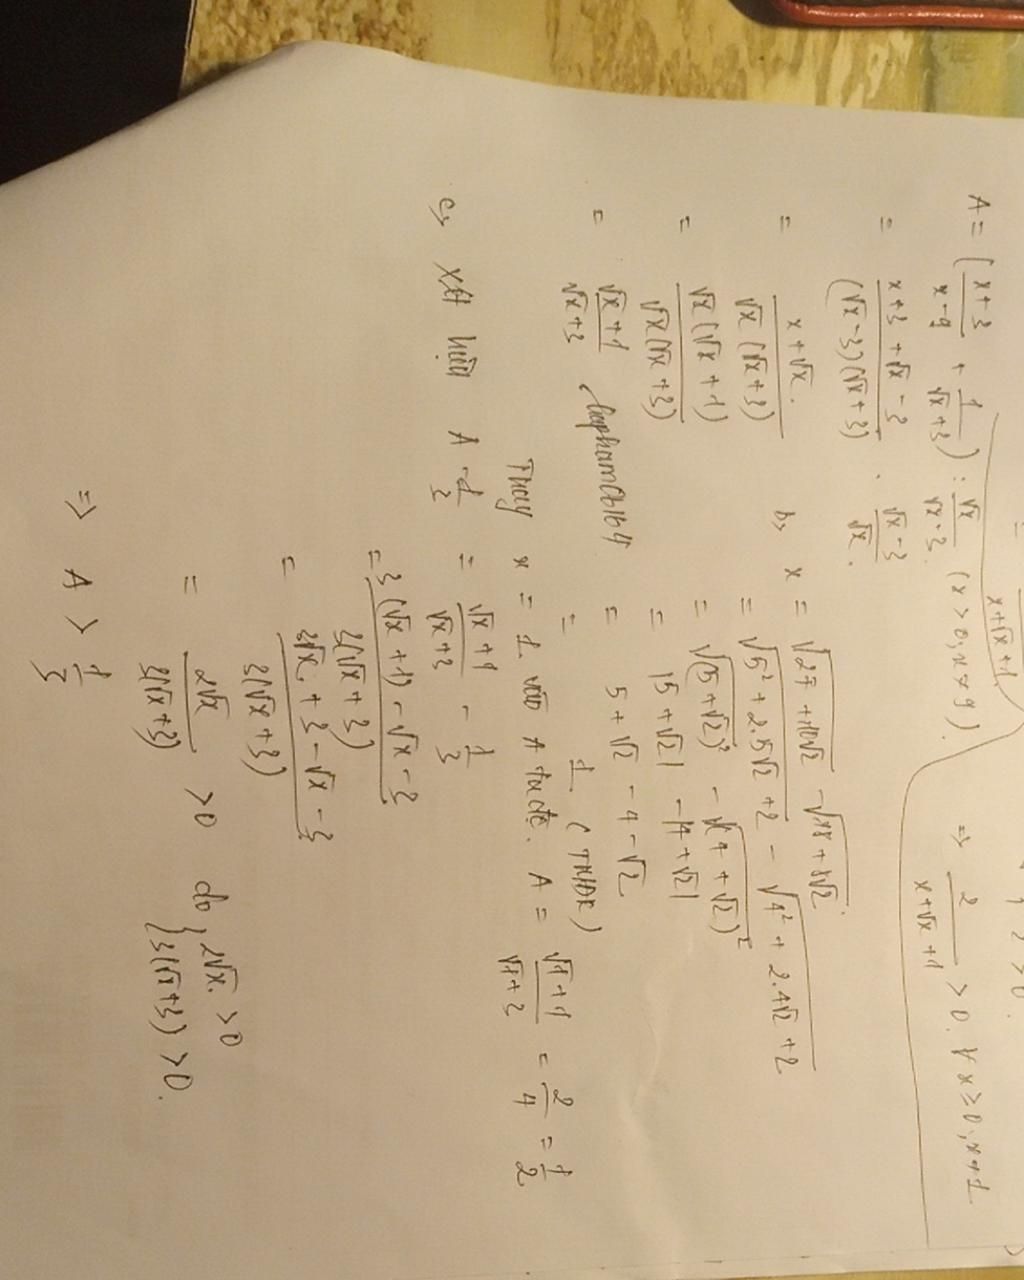 x+√x+1
=> 2/(x+√x+1) > 0 ∀ x ≥ 0, x ≠ 1
A = ((x+3)/(x-9) + 1/(√x+3)) : √x/(√x-3) (x > 0, x ≠ 9)
= (x+3+√x-3)/((√x-3)(√x+3)) . (√x-3)/√x
= (x+√x)/(√x(√x+3))
= √x(√x+1)/(√x(√x+3))
= (√x+1)/(√x+3)
b, x = √(27+10√2) - √(18+8√2)
= √(5²+2.5√2+2) - √(4²+2.4√2+2)
= √((5+√2)²) - √((4+√2)²)
= |5+√2| - |4+√2|
= 5+√2 - 4-√2
= 1 (TMĐK)
Thay x = 1 vào A ta đc. A = (√1+1)/(√1+3) = 2/4 = 1/2
c, xét hiệu A - 1/3 = (√x+1)/(√x+3) - 1/3
= (3(√x+1) - √x - 3)/(3(√x+3))
= (3√x+3-√x-3)/(3(√x+3))
= 2√x/(3(√x+3)) > 0 do { 2√x > 0
3(√x+3) > 0.
=> A > 1/3